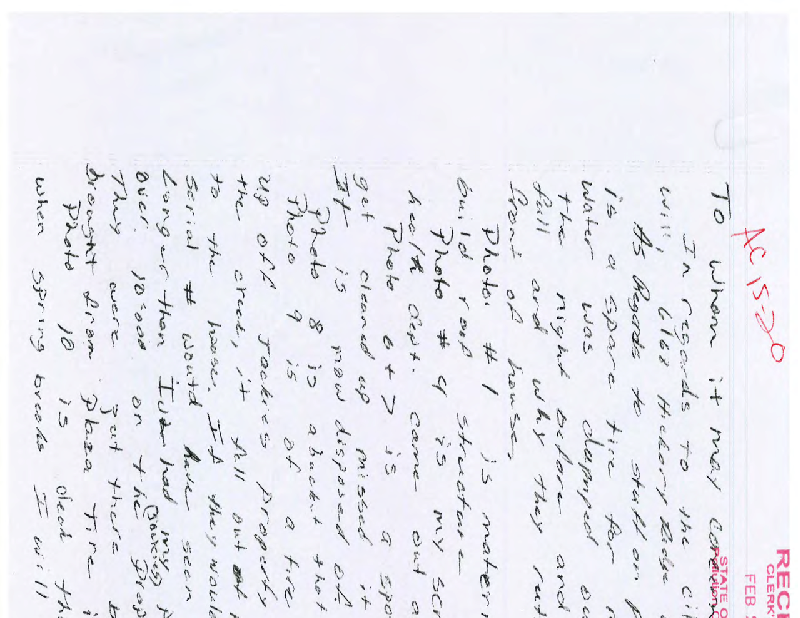 RECE
CLERK'
FEB
STATE O
AC 15-20
To whom it may Concern
In regards to the cit
will, 6168 Hickory Ridge
As Regards to stuff on p
is a spare tire for m
water was dumped ou
the night before and
full and why they rut
front of house.
Photo #1 is mater
build roof structure
Photo #4 is my scr
health Dept. came out a
Photo 6+7 is a spo
get cleaned up missed it
It is now disposed of
Photo 8 is a bucket that
Photo 9 is of a tire
up off Jackies property
the creek, it fell out of
to the house. If they would
serial # would have seen
Longer than I've had my p
over. 10:00 on the Prop
They were put there b
brought from Plaza Tire i
Photo 10 is clean th
when spring breaks I will